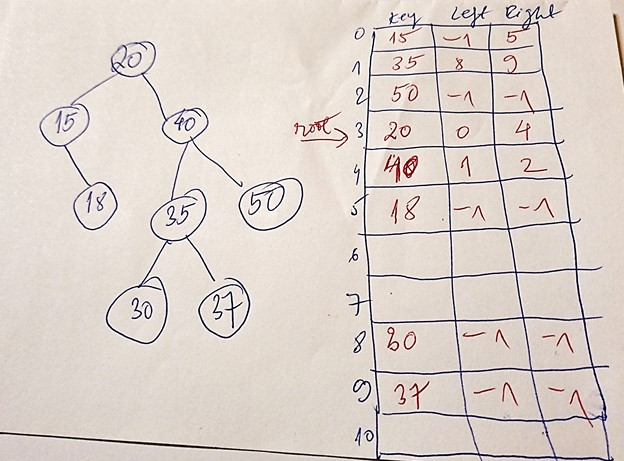 20
15 40
18 35 50
30 37
Key Left Right
0 15 -1 5
1 35 8 9
2 50 -1 -1
root 3 20 0 4
4 40 1 2
5 18 -1 -1
6
7
8 30 -1 -1
9 37 -1 -1
10